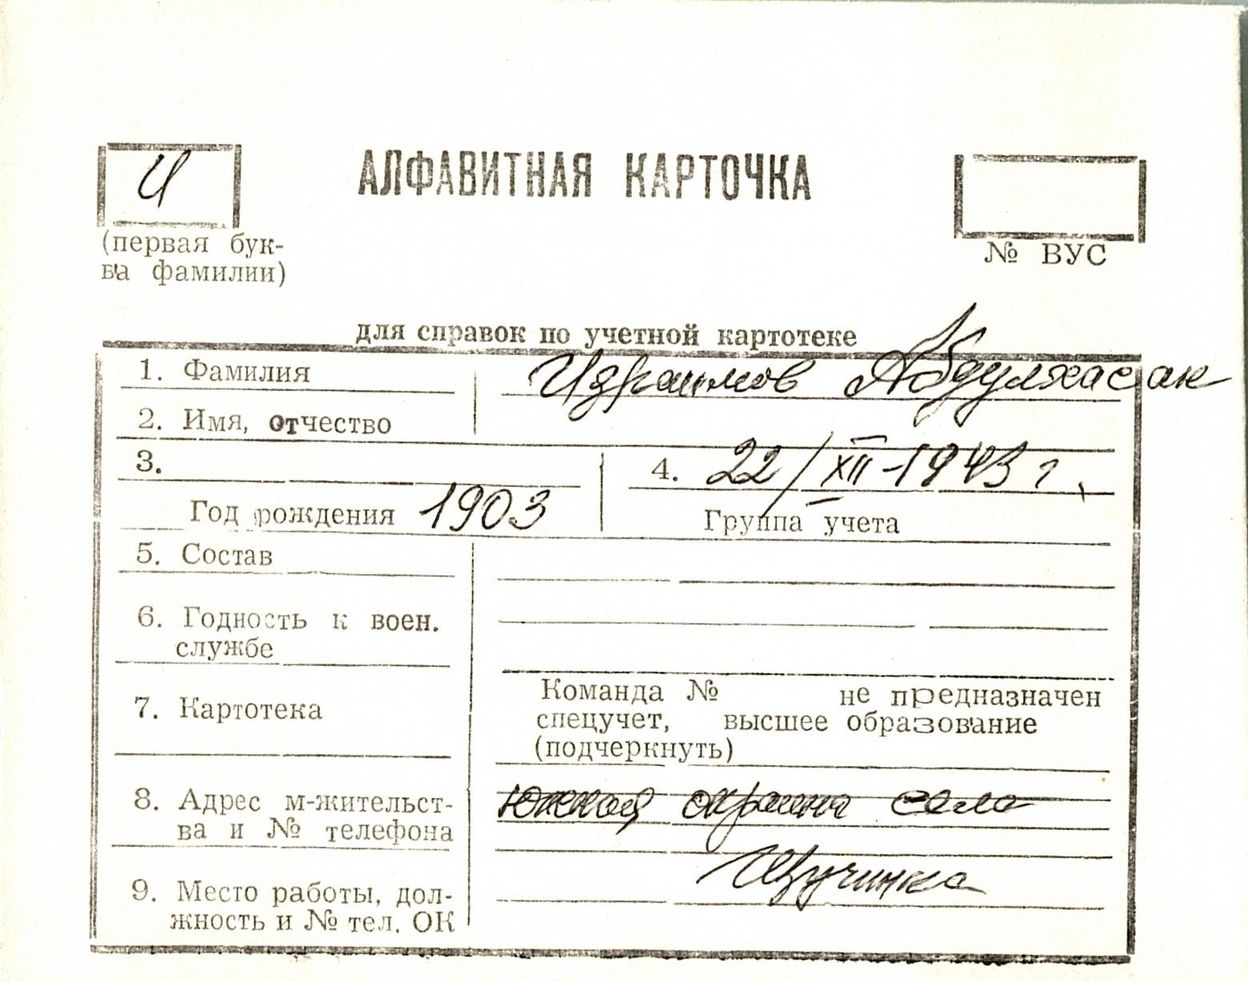 И
АЛФАВИТНАЯ КАРТОЧКА
(первая бук-
ва фамилии)
№ ВУС
для справок по учетной картотеке
1. Фамилия Израимов Абдулхасак
2. Имя, отчество
3.
4. 22/XII-1943 г.
Год рождения 1903
Группа учета
5. Состав
6. Годность к воен.
службе
7. Картотека
Команда № не предназначен
спецучет, высшее образование
(подчеркнуть)
8. Адрес м-жительст-
ва и № телефона
Южная окраина села
Щучинка
9. Место работы, дол-
жность и № тел. ОК